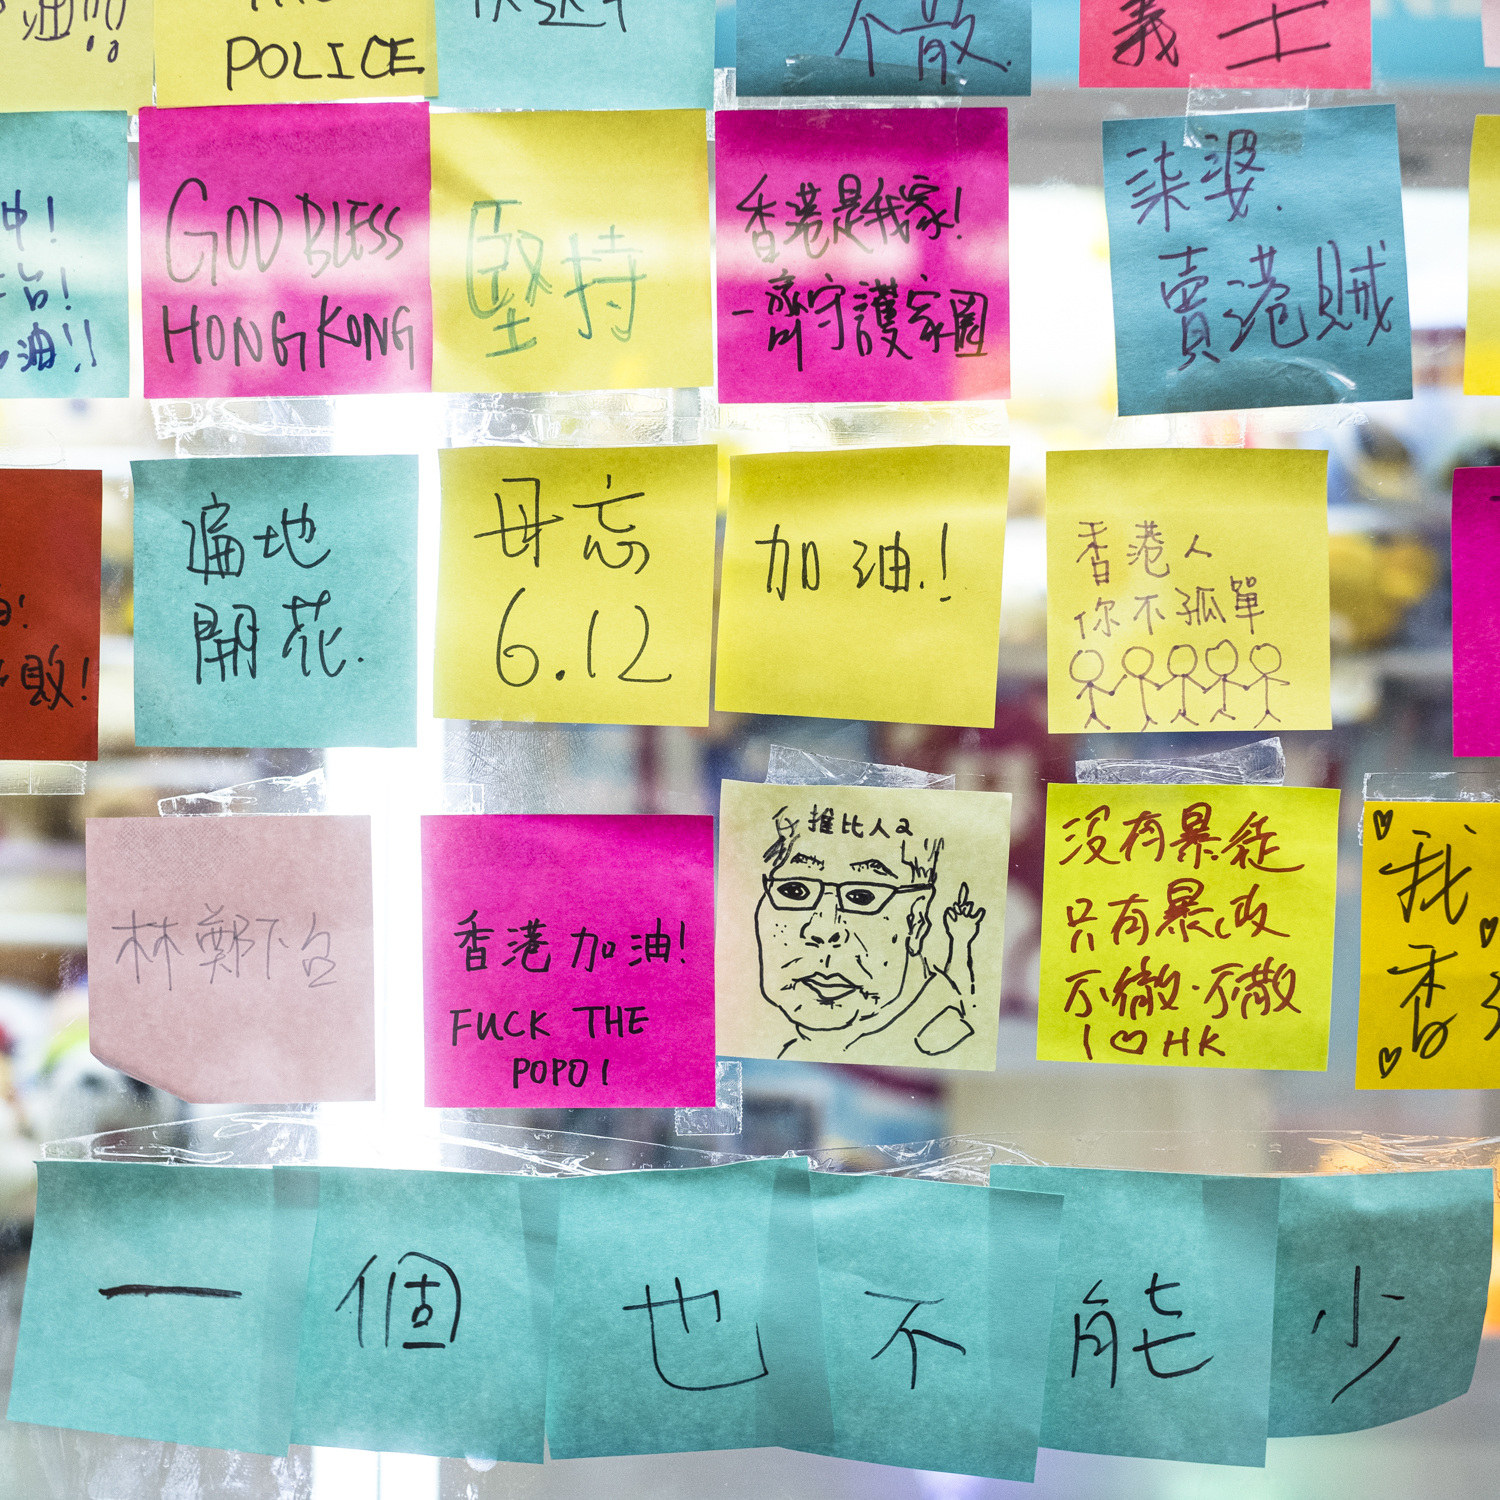 油!!
POLICE
不散.
義士
GOD BLESS
HONG KONG
堅持
香港是我家!
一齊守護家園
柒婆.
賣港賊
油!!
遍地
開花.
毋忘
6.12
加油.!
香港人
你不孤單
敗!
林鄭下台
香港加油!
FUCK THE
POPO!
推比人2
沒有暴徒
只有暴政
不撤·不散
I ♡ HK
我
香
一個也不能少